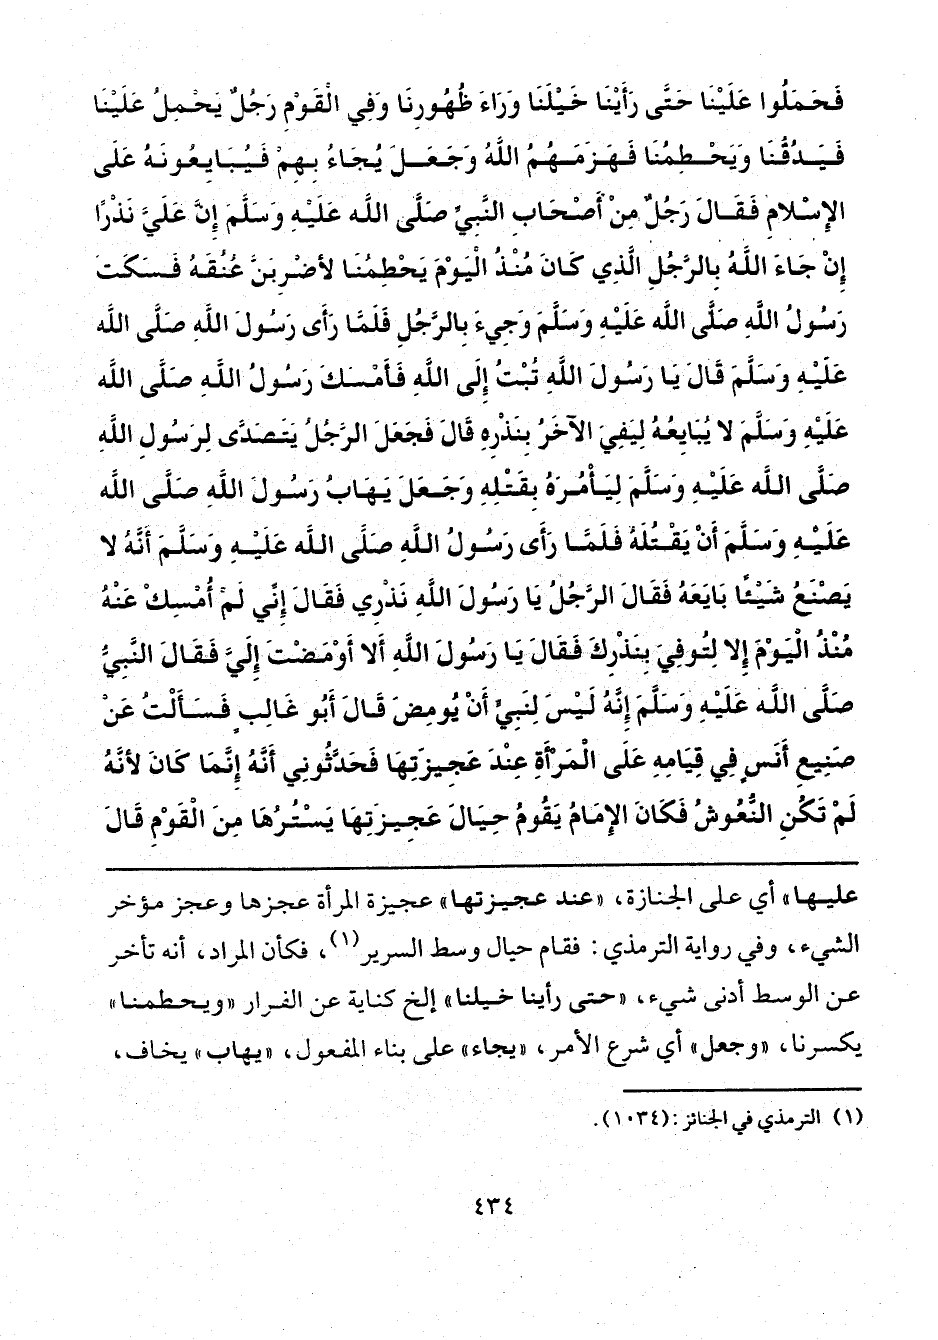 فَحَمَلُوا عَلَيْنَا حَتَّى رَأَيْنَا خَيْلَنَا وَرَاءَ ظُهُورِنَا وَفِي الْقَوْمِ رَجُلٌ يَحْمِلُ عَلَيْنَا
فَيَدُقُّنَا وَيَحْطِمُنَا فَهَزَمَهُمُ اللَّهُ وَجَعَلَ يُجَاءُ بِهِمْ فَيُبَايِعُونَهُ عَلَى
الإِسْلامِ فَقَالَ رَجُلٌ مِنْ أَصْحَابِ النَّبِيِّ صَلَّى الله عَلَيْهِ وَسَلَّمَ إِنَّ عَلَيَّ نَذْرًا
إِنْ جَاءَ اللَّهُ بِالرَّجُلِ الَّذِي كَانَ مُنْذُ الْيَوْمَ يَحْطِمُنَا لأَضْرِبَنَّ عُنُقَهُ فَسَكَتَ
رَسُولُ اللَّهِ صَلَّى الله عَلَيْهِ وَسَلَّمَ وَجِيءَ بِالرَّجُلِ فَلَمَّا رَأَى رَسُولَ اللَّهِ صَلَّى الله
عَلَيْهِ وَسَلَّمَ قَالَ يَا رَسُولَ اللَّهِ تُبْتُ إِلَى اللَّهِ فَأَمْسَكَ رَسُولُ اللَّهِ صَلَّى الله
عَلَيْهِ وَسَلَّمَ لا يُبَايِعُهُ لِيَفِيَ الآخَرُ بِنَذْرِهِ قَالَ فَجَعَلَ الرَّجُلُ يَتَصَدَّى لِرَسُولِ اللَّهِ
صَلَّى الله عَلَيْهِ وَسَلَّمَ لِيَأْمُرَهُ بِقَتْلِهِ وَجَعَلَ يَهَابُ رَسُولَ اللَّهِ صَلَّى الله
عَلَيْهِ وَسَلَّمَ أَنْ يَقْتُلَهُ فَلَمَّا رَأَى رَسُولُ اللَّهِ صَلَّى الله عَلَيْهِ وَسَلَّمَ أَنَّهُ لا
يَصْنَعُ شَيْئًا بَايَعَهُ فَقَالَ الرَّجُلُ يَا رَسُولَ اللَّهِ نَذْرِي فَقَالَ إِنِّي لَمْ أُمْسِكْ عَنْهُ
مُنْذُ الْيَوْمَ إِلا لِتُوفِيَ بِنَذْرِكَ فَقَالَ يَا رَسُولَ اللَّهِ أَلا أَوْمَضْتَ إِلَيَّ فَقَالَ النَّبِيُّ
صَلَّى الله عَلَيْهِ وَسَلَّمَ إِنَّهُ لَيْسَ لِنَبِيٍّ أَنْ يُومِضَ قَالَ أَبُو غَالِبٍ فَسَأَلْتُ عَنْ
صَنِيعِ أَنَسٍ فِي قِيَامِهِ عَلَى الْمَرْأَةِ عِنْدَ عَجِيزَتِهَا فَحَدَّثُونِي أَنَّهُ إِنَّمَا كَانَ لأَنَّهُ
لَمْ تَكُنِ النُّعُوشُ فَكَانَ الإِمَامُ يَقُومُ حِيَالَ عَجِيزَتِهَا يَسْتُرُهَا مِنَ الْقَوْمِ قَالَ
عليها» أي على الجنازة، «عند عجيزتها» عجيزة المرأة عجزها وعجز مؤخر
الشيء، وفي رواية الترمذي: فقام حيال وسط السرير(١)، فكأن المراد، أنه تأخر
عن الوسط أدنى شيء، «حتى رأينا خيلنا» إلخ كناية عن الفرار «ويحطمنا»
يكسرنا، «وجعل» أي شرع الأمر، «يجاء» على بناء المفعول، «يهاب» يخاف،
(١) الترمذي في الجنائز: (١٠٣٤).
٤٣٤